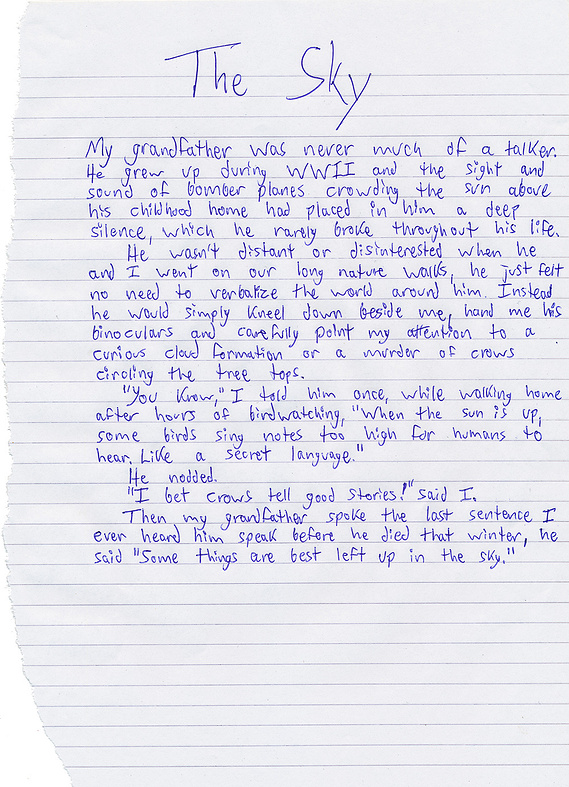 The Sky
My grandfather was never much of a talker.
He grew up during WWII and the sight and
sound of bomber planes crowding the sun above
his childhood home had placed in him a deep
silence, which he rarely broke throughout his life.
He wasn't distant or disinterested when he
and I went on our long nature walks, he just felt
no need to verbalize the world around him. Instead
he would simply kneel down beside me, hand me his
binoculars and carefully point my attention to a
curious cloud formation or a murder of crows
circling the tree tops.
"You know," I told him once, while walking home
after hours of birdwatching, "When the sun is up,
some birds sing notes too high for humans to
hear. Like a secret language."
He nodded.
"I bet crows tell good stories!" said I.
Then my grandfather spoke the last sentence I
ever heard him speak before he died that winter, he
said "Some things are best left up in the sky."